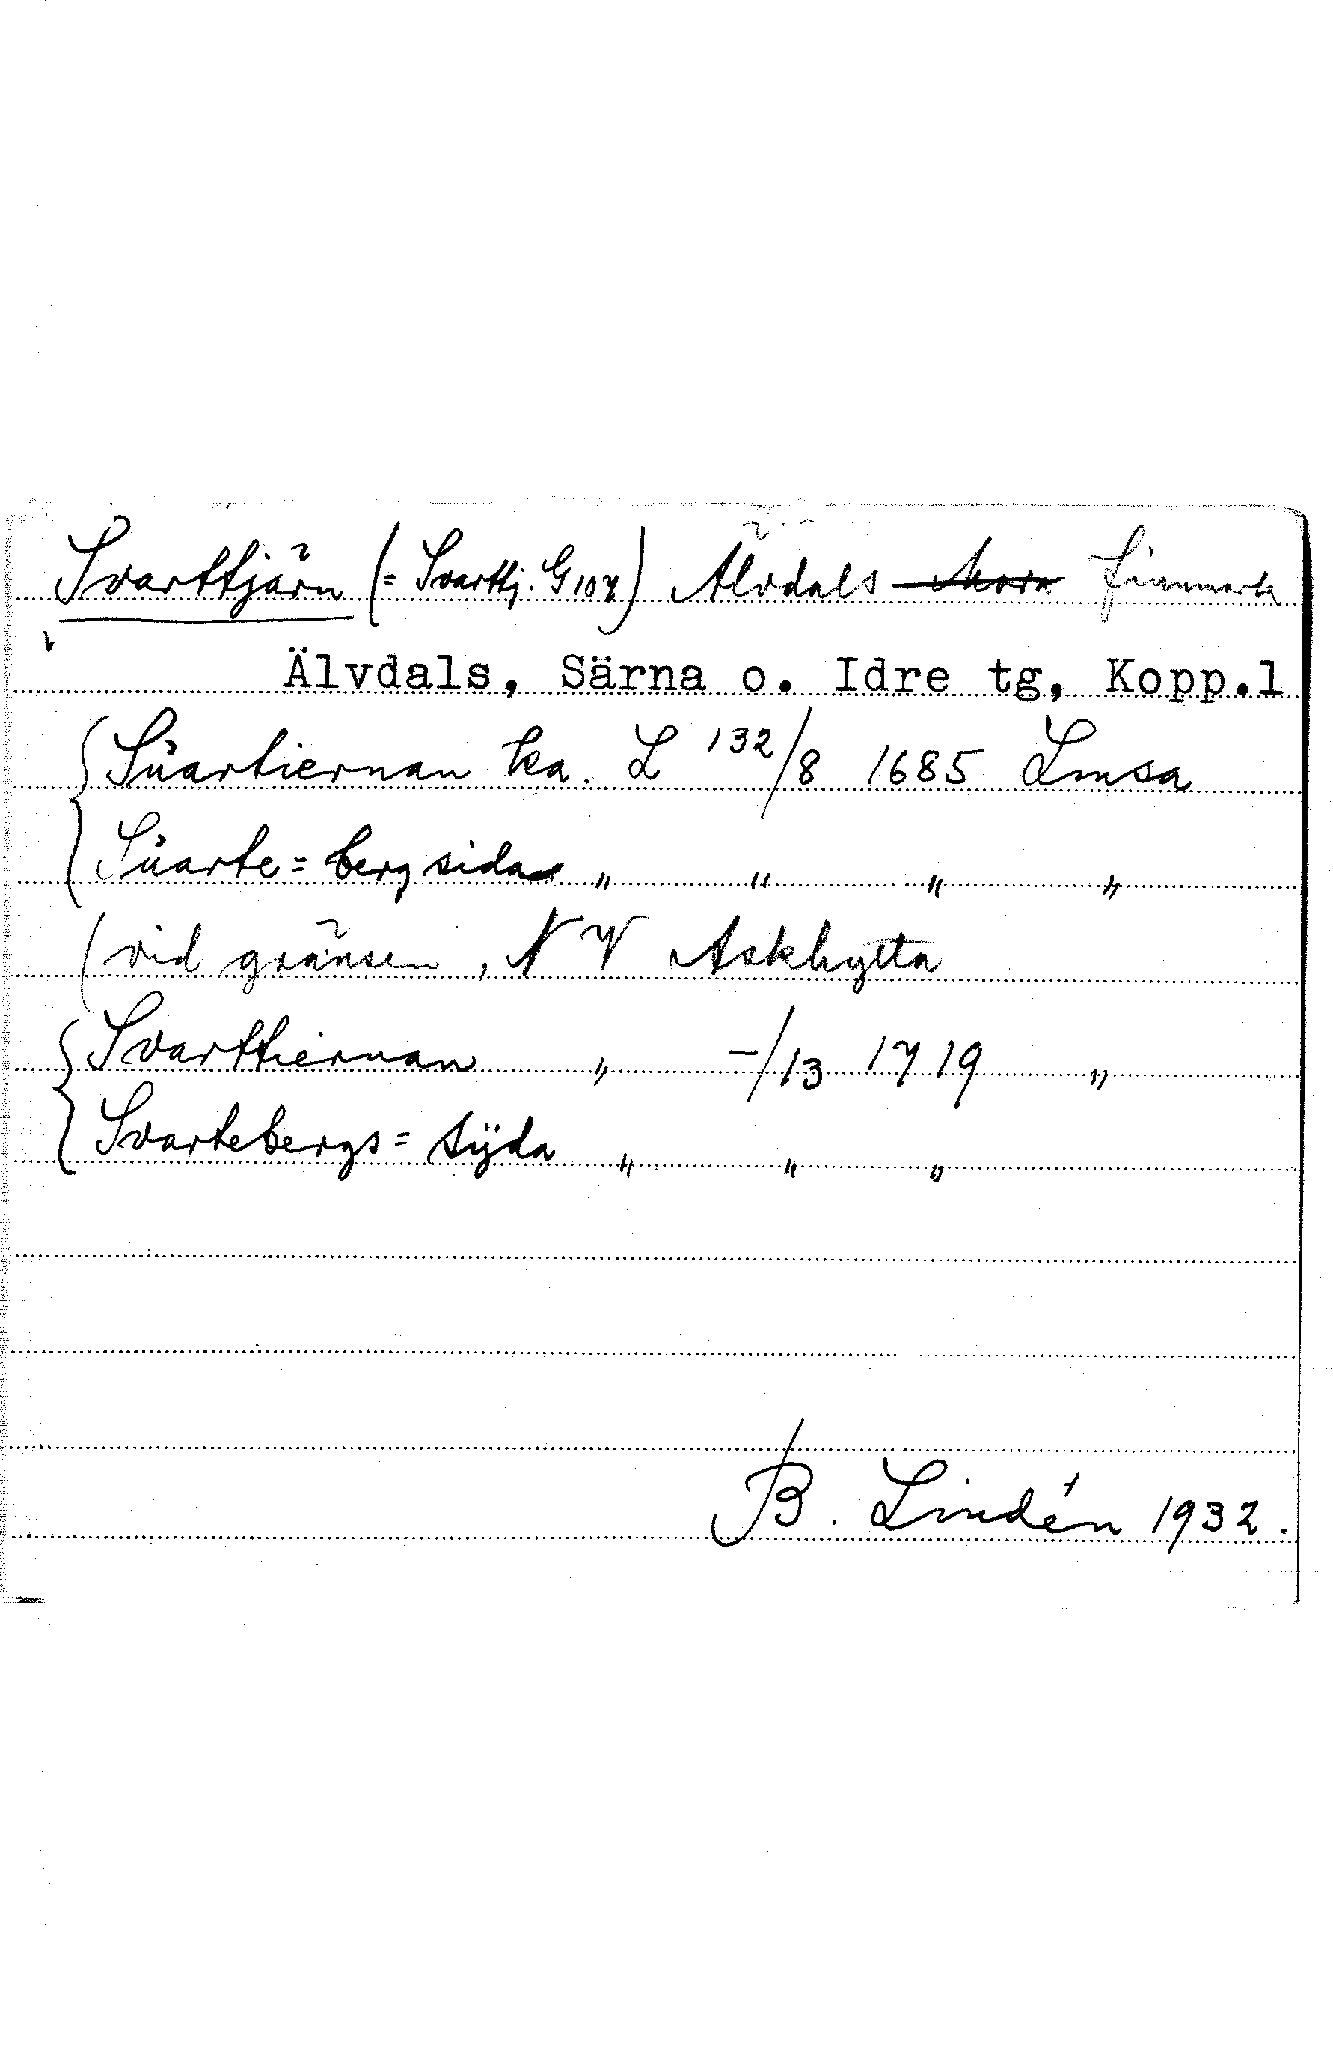 Svarttjärn (= Svarttj. G 107) Älvdals Mora finnmark
Älvdals, Särna o. Idre tg, Kopp.l
Sůartiernan ka. L 132/8 1685 Lmsa
Sůarte= berg sida " " " "
(vid gränsen, N V Askhytta
Svarttiernan " -/13 1719 "
Svartebergs= sÿda " " "
B. Lindén 1932.